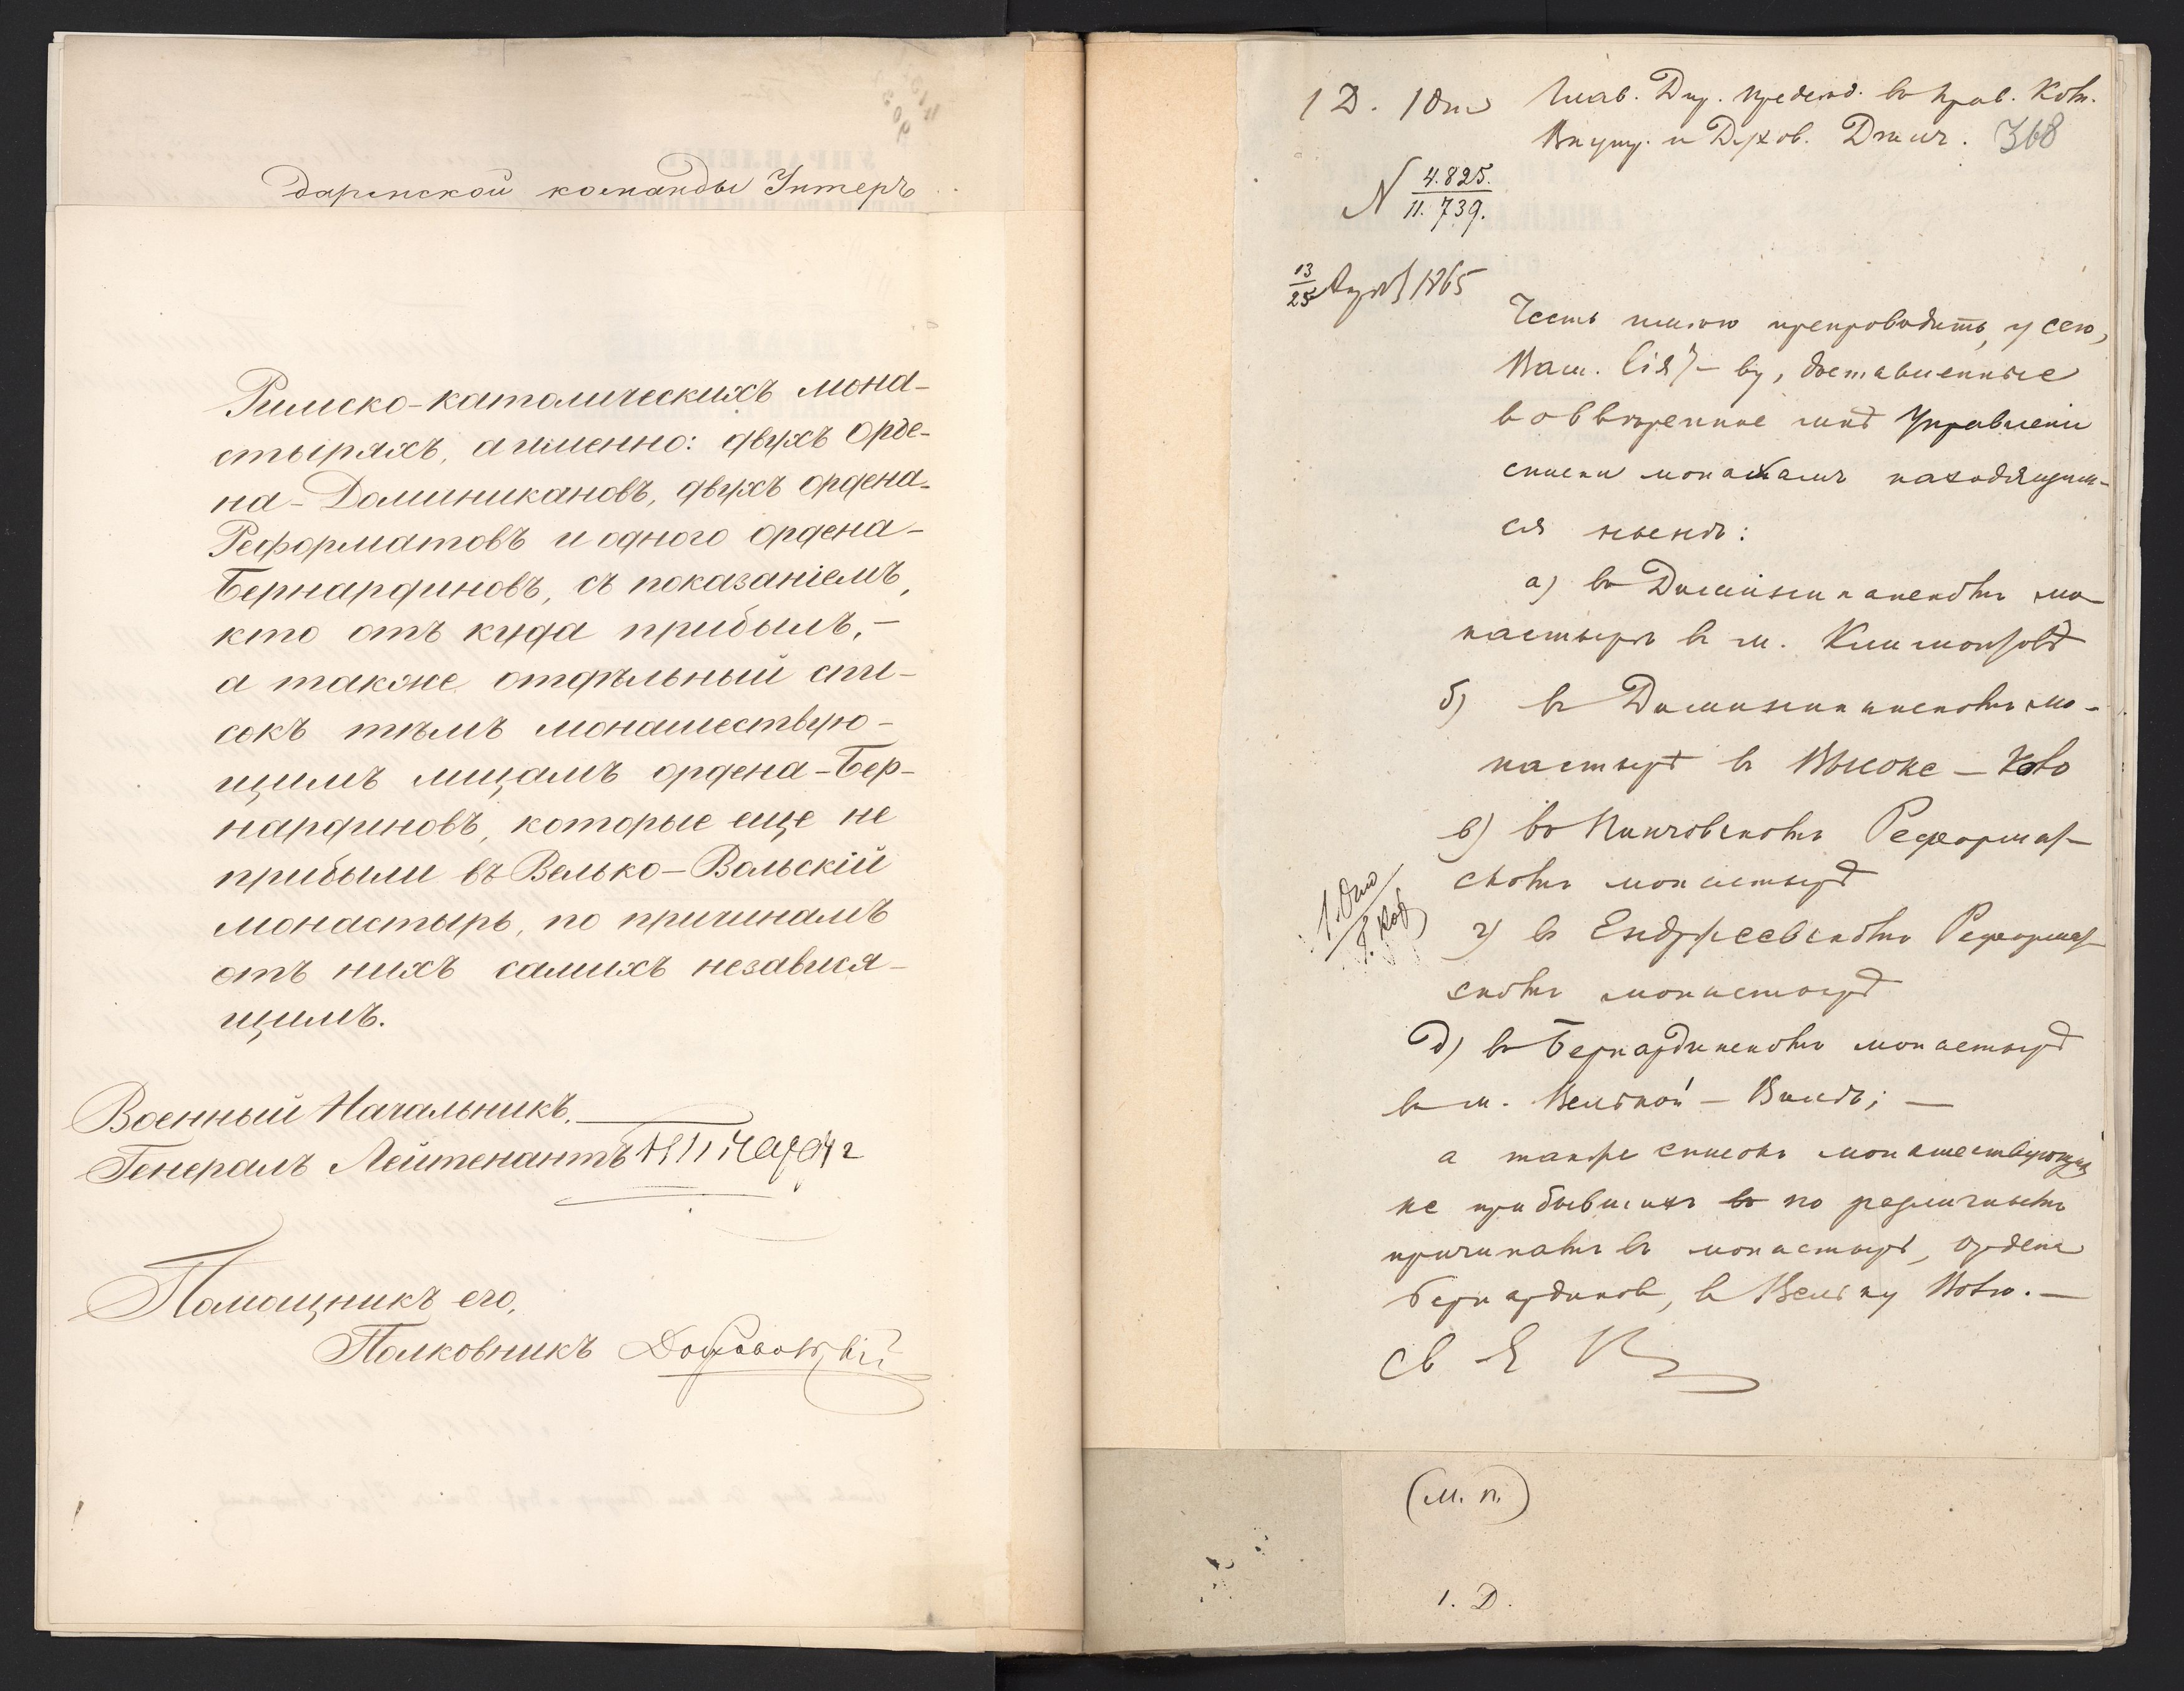 дармской команды Унтеръ
Римско-католическихъ мона-
стыряхъ, а именно: двухъ Орде-
на-Доминикановъ, двухъ ордена-
Реформатовъ и одного ордена-
Бернардиновъ, съ показаніемъ,
кто отъ куда прибылъ,-
а также отдѣльный спи-
сокъ тѣмъ монашествую-
щимъ лицамъ ордена-Бер-
нардиновъ, которые еще не
прибыли въ Велько-Вольскій
монастырь, по причинамъ
отъ нихъ самихъ независя-
щимъ.
Военный Начальникъ,
Генералъ Лейтенантъ
Помощникъ его,
Полковникъ
1 Д. 1 Отд
Глав. Дир. Предсѣд. въ Прав. Ком.
Внутр. и Духов. Дѣлъ. 368
N 4.825.
11.739.
13
25 1865
Честь имѣю препроводить, у сего,
Ваш. Сія-ву, доставленные
во ввѣренное мнѣ Управленіе
списки монахамъ находящим-
ся нынѣ:
а) въ Доминиканскомъ мо-
настырѣ въ м. Климонтовѣ
б) въ Доминиканскомъ мо-
настырѣ въ Высоке-Коло
в) въ Пинчовскомъ Реформат-
скомъ монастырѣ
г) въ Енджеевскомъ Реформат-
скомъ монастырѣ
д) въ Бернардинскомъ монастырѣ
въ м. Велькой-Волѣ;-
а также списокъ монашествующихъ
не прибывшихъ въ по различнымъ
причинамъ въ монастырь, ордена
Бернардиновъ, въ Вельку Волю.-
1. Отд
св Е
(м. п.)
1. Д.